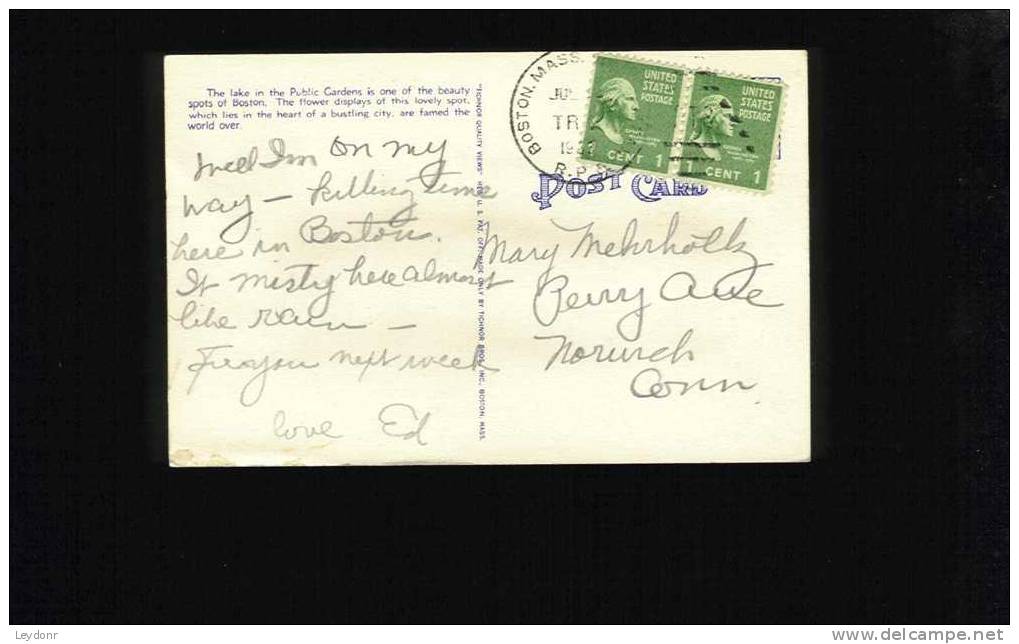 The lake in the Public Gardens is one of the beauty
spots of Boston. The flower displays of this lovely spot,
which lies in the heart of a bustling city, are famed the
world over.
Well Im on my
way - killing time
here in Boston.
It misty here almost
like rain -
you next week
love Ed
"TICHNOR QUALITY VIEWS" REG. U. S. PAT. OFF. MADE ONLY BY TICHNOR BROS., INC., BOSTON, MASS.
BOSTON, MASS.
TR
R.P.
UNITED
STATES
POSTAGE
CENT 1
UNITED
STATES
POSTAGE
CENT 1
POST CARD
Mary Mehrholtz
Perry Ave
Norwich
Conn.
Leydonr
www.delcampe.net